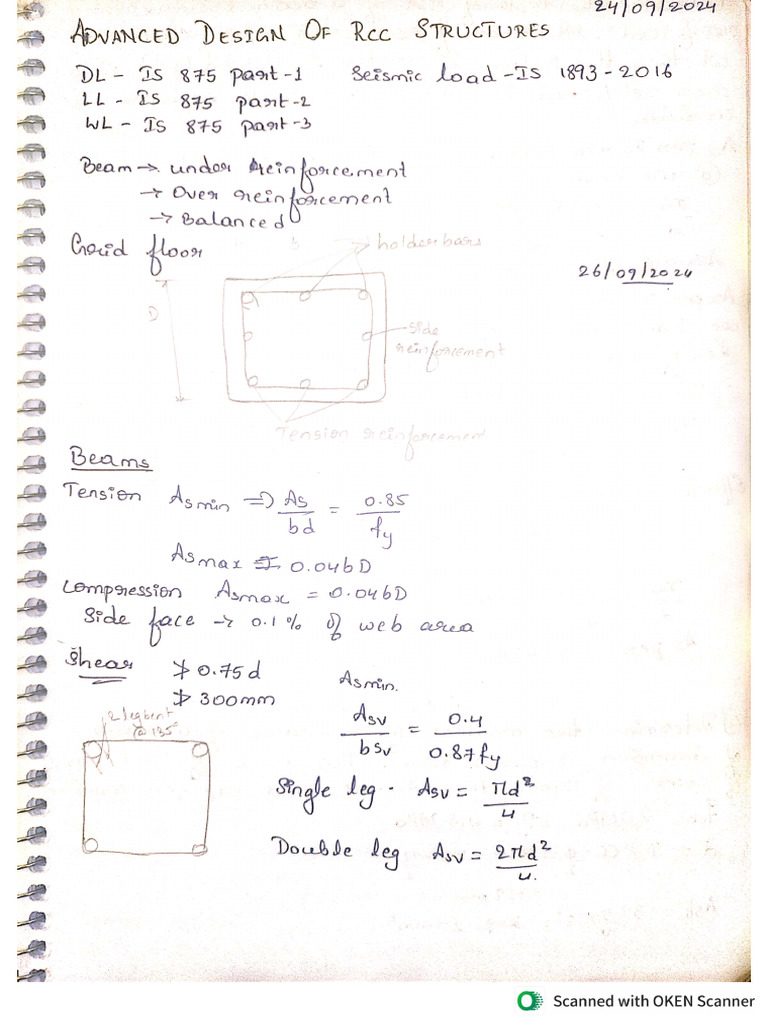 24/09/2024
ADVANCED DESIGN OF RCC STRUCTURES
DL - IS 875 part-1 Seismic load - IS 1893-2016
LL - IS 875 part-2
WL - IS 875 part-3
Beam → under reinforcement
→ Over reinforcement
→ Balanced
Grid floor
holder bars
26/09/2024
D
side
reinforcement
Tension reinforcement
Beams
Tension As min ⇒ As/bd = 0.85/fy
As max = 0.04bD
Compression As max = 0.04bD
Side face → 0.1% of web area
Shear ≯ 0.75d
≯ 300mm
As min.
Asv/bsv = 0.4/0.87fy
2 leg bent
@ 135°
Single leg - Asv = πd²/4
Double leg Asv = 2πd²/4.
Scanned with OKEN Scanner